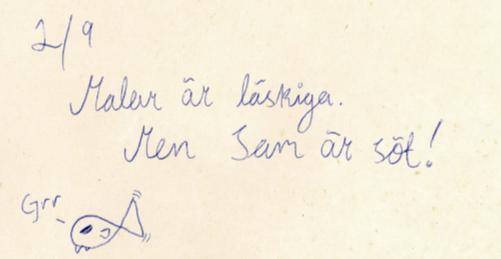 2/9
Malar är läskiga.
Men Sam är söt!
Grr